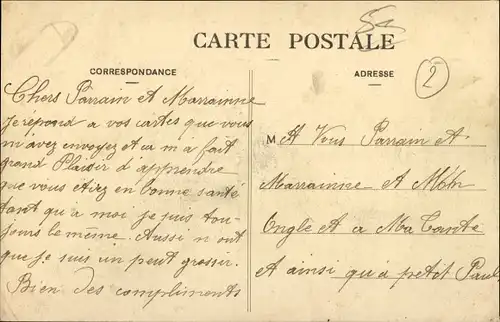 CARTE POSTALE
CORRESPONDANCE
ADRESSE
2
Chers Parrain et Marrainne
Je répond a vos cartes que vous
m'avez envoyez et ca m'a fait
grand Plaisir d'apprendre
que vous etiez en bonne santé
tant qu'a moi je suis tou-
jours le même. Aussi n ont
que je suis un peut grossir.
Bien des compliments
M A Vous Parrain et
Marrainne et Mon
Ongle et a Ma Tante
et ainsi qu'a petit Paul